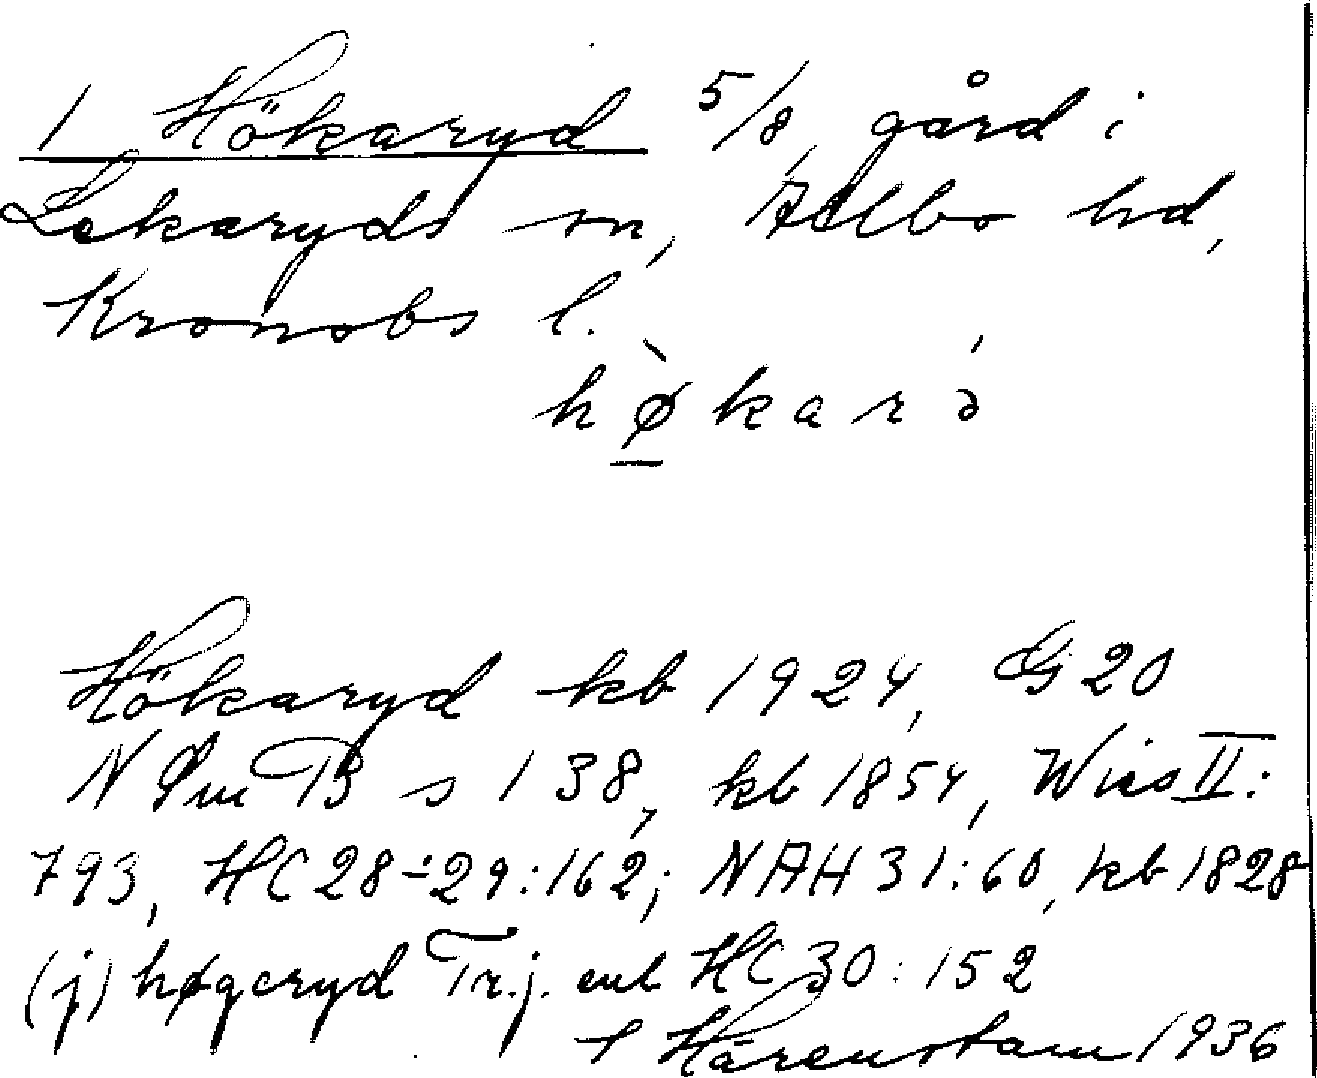 1 Hökaryd 5/8 gård i
Lekaryds sn, Allbo hd,
Kronobs l.
hø̀karə́
Hökaryd kb 1924, G 20
N Sm B s 138, kb 1854, Wies II:
793, HC 28÷29:162; NAH 31:60, kb 1828
(j) høgeryd Trj. enl HC 30:152
Härenstam 1936